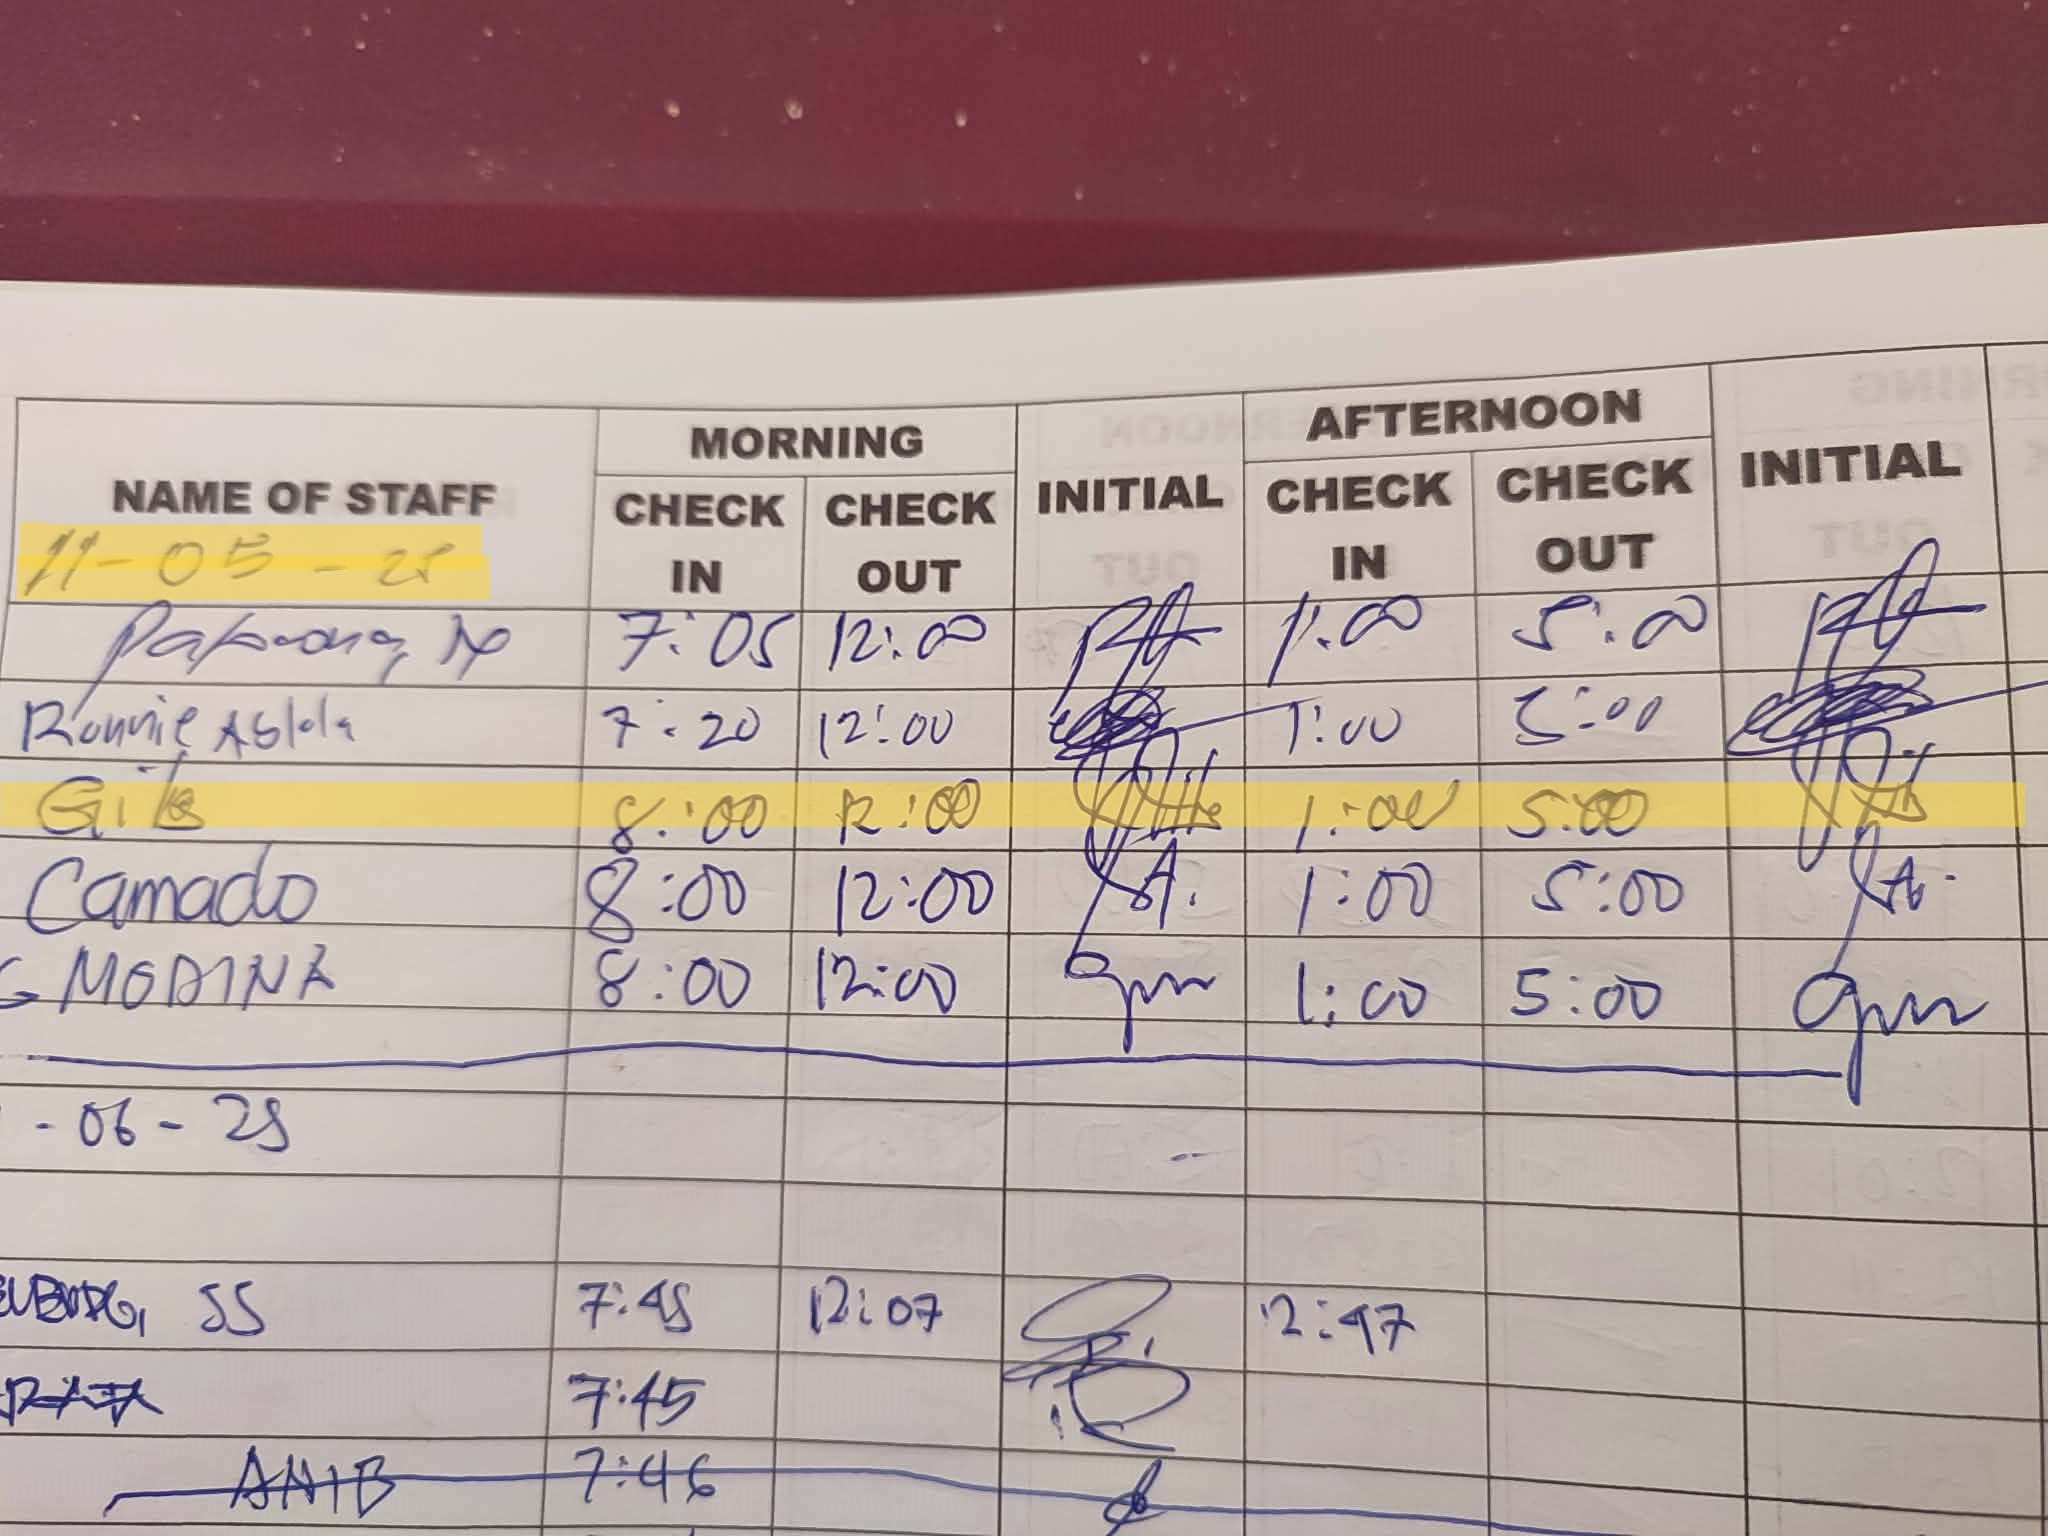 MORNING AFTERNOON
NAME OF STAFF CHECK IN CHECK OUT INITIAL CHECK IN CHECK OUT INITIAL
11-05-25
7:05 12:00 1:00 5:00
Ronnie 7:20 12:00 1:00 5:00
8:00 12:00 1:00 5:00
Camado 8:00 12:00 1:00 5:00
G MODINA 8:00 12:00 gm 1:00 5:00 gm
-06-25
SS 7:45 12:07 12:47
7:45
ANIB 7:46